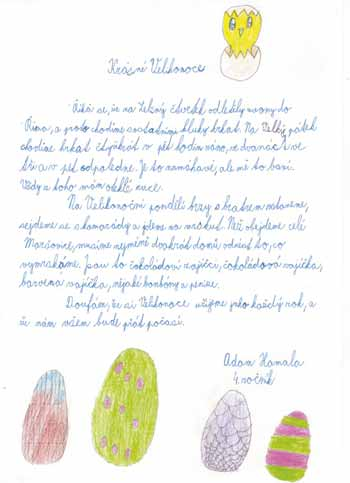 Krásné Velikonoce
Říká se, že na Zelený čtvrtek odletěly zvony do
Říma, a proto chodíme s ostatními kluky hrkat. Na Velký pátek
chodíme hrkat čtyřikrát v pět hodin ráno, ve dvanáct, ve
tři a v pět odpoledne. Je to namáhavé, ale mě to baví.
Vždy z toho mám oteklé ruce.
Na Velikonoční pondělí brzy s bratrem vstaneme,
sejdeme se s kamarády a jdeme na mrskut. Než obejdeme celé
Maršovice, musíme nejméně dvakrát domů odnést to, co
vymrskáme. Jsou to čokoládoví zajíčci, čokoládová vajíčka,
barvená vajíčka, nějaké bonbóny a peníze.
Doufám, že si Velikonoce užijeme jako každý rok, a
že nám všem bude přát počasí.
Adam Hamala
4. ročník